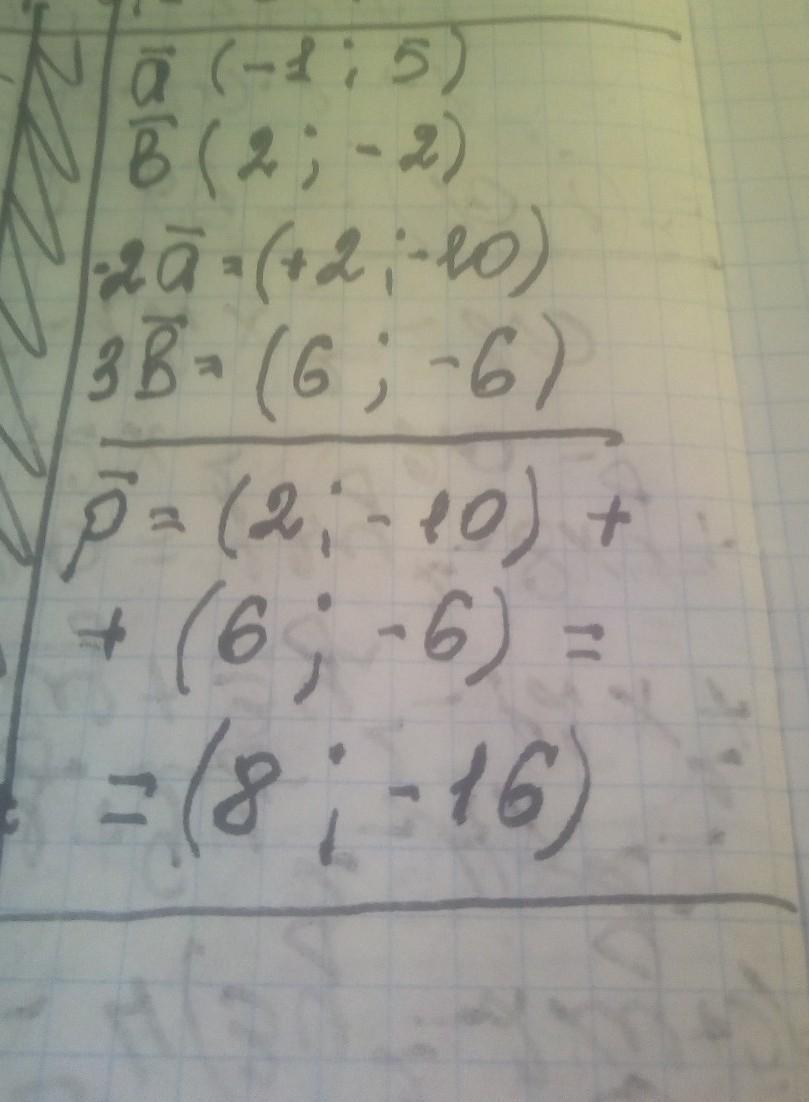 a̅ (-1; 5)
B̅ (2; -2)
-2a̅ = (+2; -10)
3B̅ = (6; -6)
p̅ = (2; -10) +
+ (6; -6) =
= (8; -16)